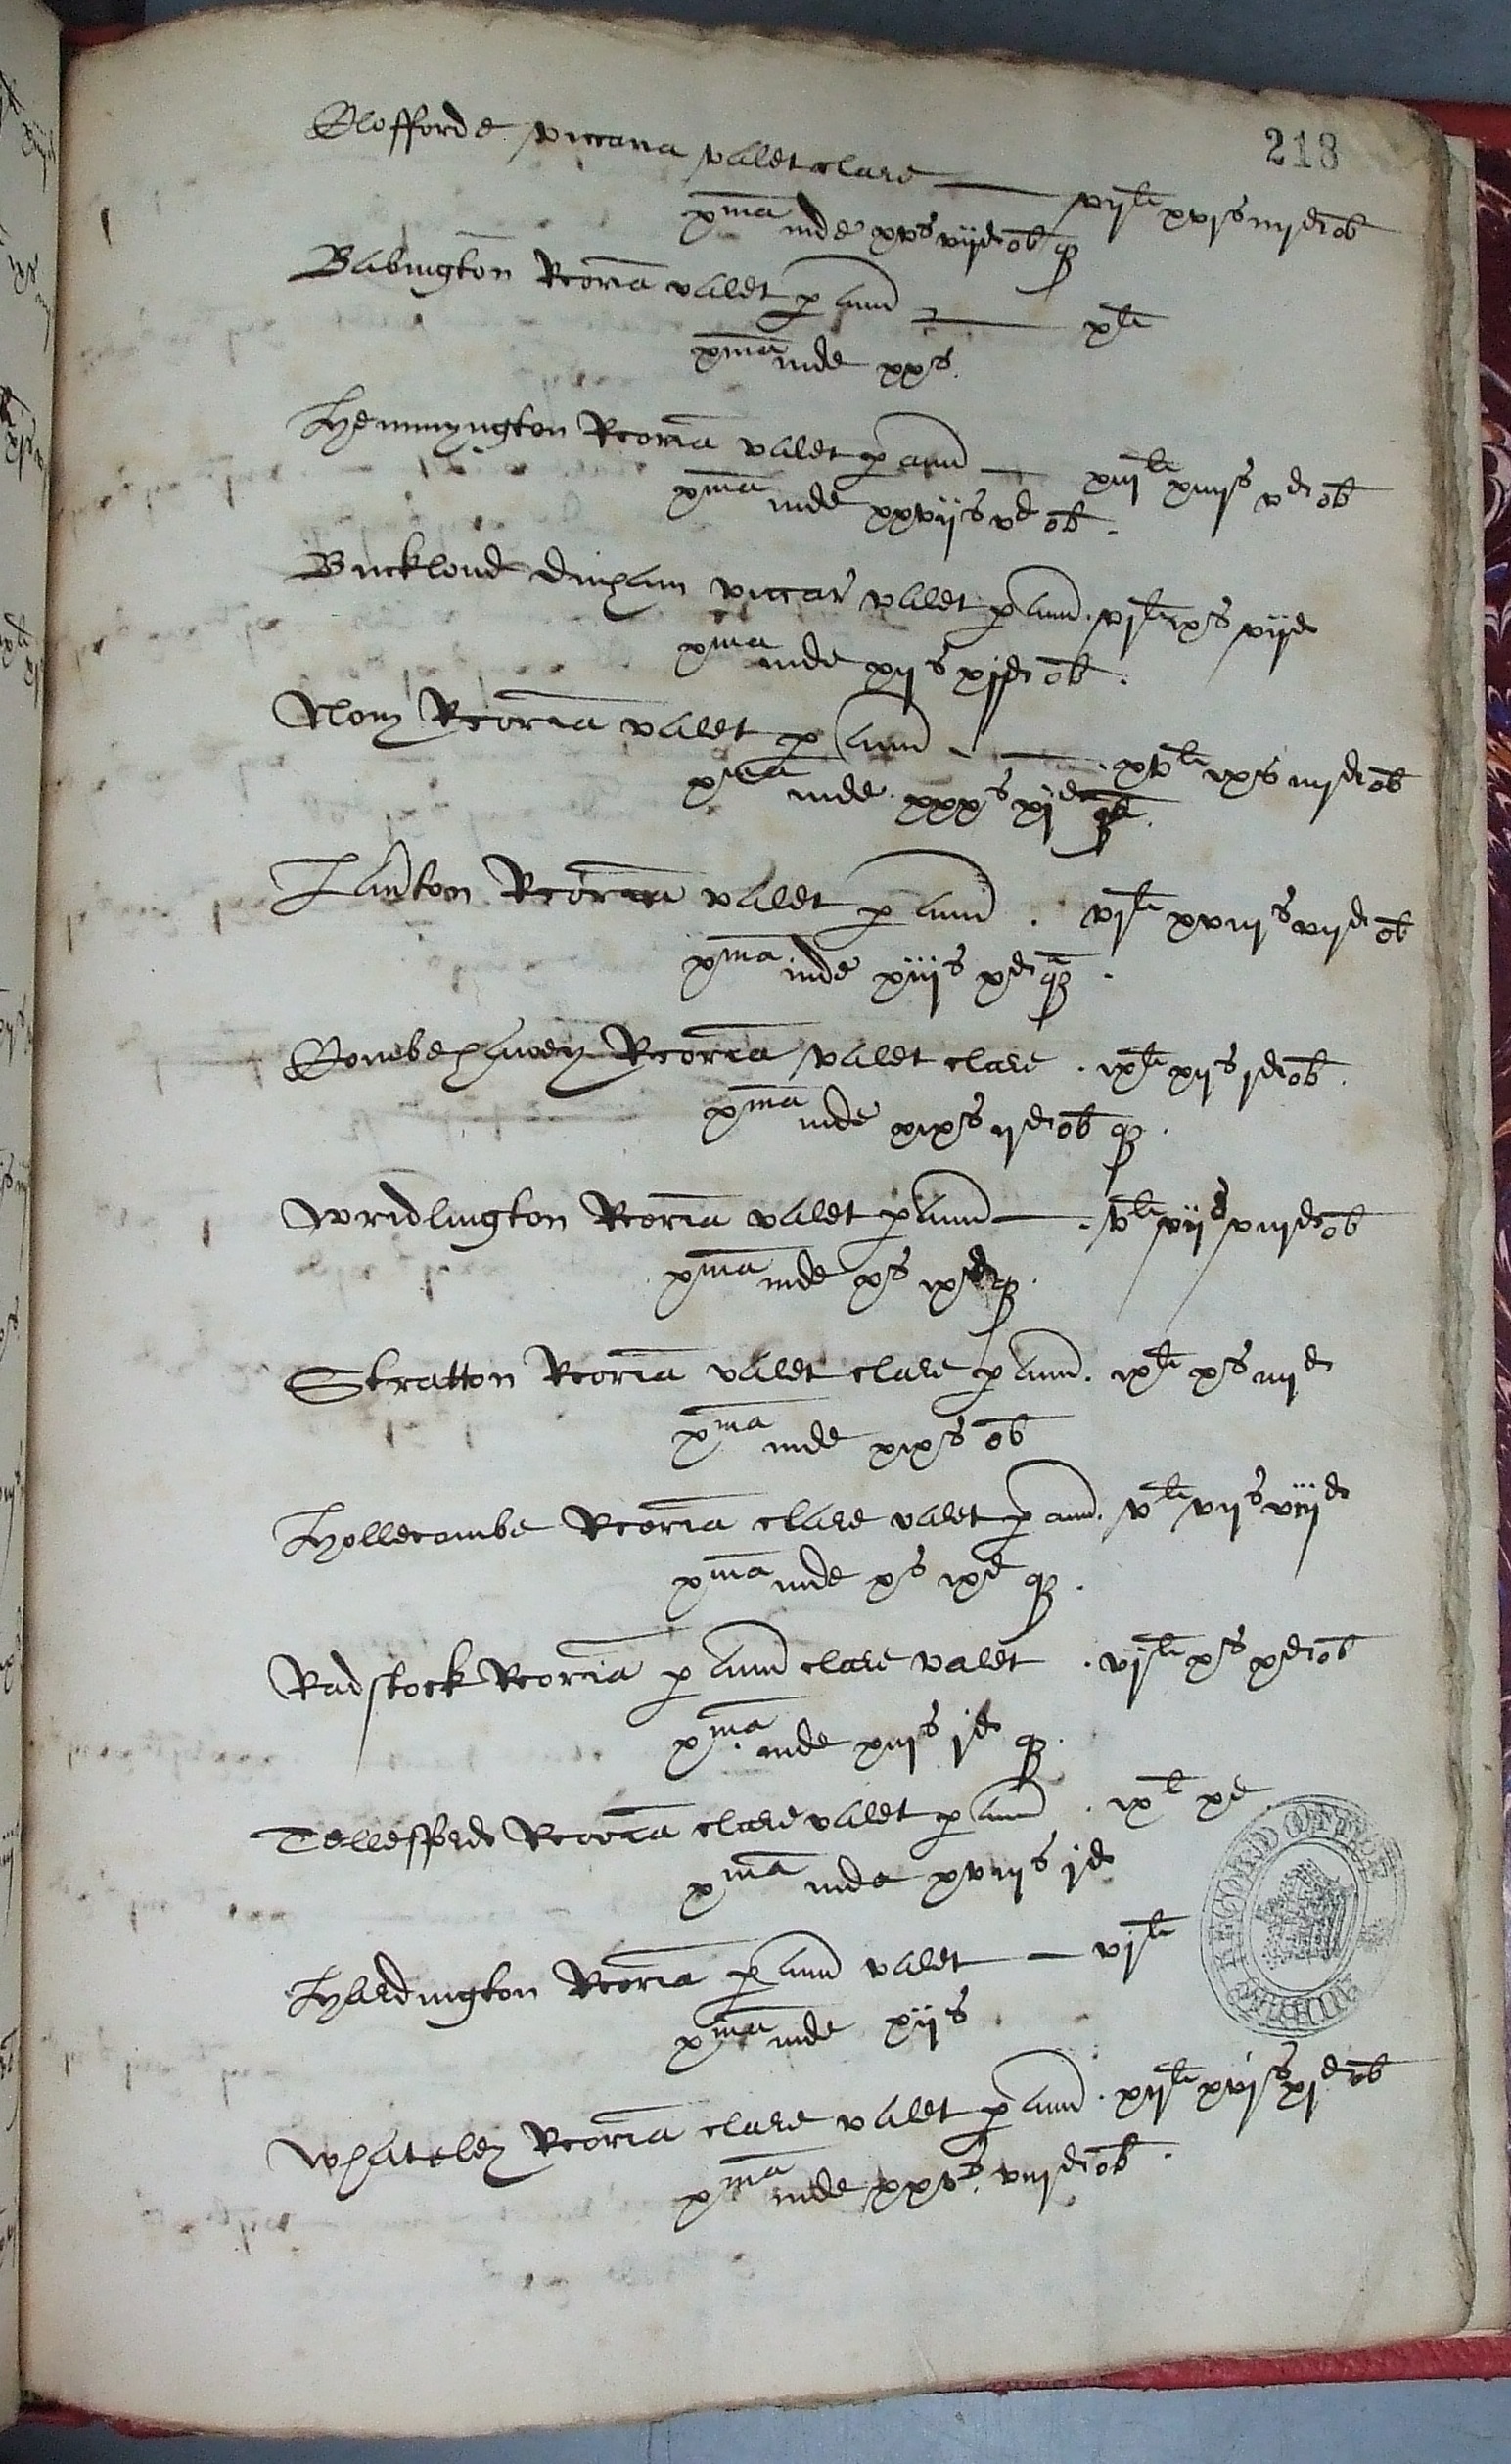 218
Clofforde viccaria valet clare — vijli xvjs iiijd ob
xma inde xvs vijd ob q
Babington Rcoria valet p ann — xli
xma inde xxs.
Hemmyngton Rcoria valet p ann — xiijli xiiijs vd ob
xma inde xxvijs vd ob.
Bucklond dinham viccar valet p ann. vjli ixs vijd
xma inde xijs xjd ob.
Nony Rcoria valet p ann — . xvli ixs iiijd ob
xma inde xxxs xjd q.
Lauton Rcoria valet p ann . vjli xviijs vijd ob
xma inde xiijs xd q.
Rcoria valet clare . ixli xijs jd ob.
xma inde xixs ijd ob q.
Wridlington Rcoria valet p ann — . vli vijs viijd ob
xma inde xs ixd q.
Stratton Rcoria valet clare p ann. ixli xs iiijd
xma inde xixs ob
Hollecombe Rcoria clare valet p ann. vli vijs viijd
xma inde xs ixd q.
Radstock Rcoria p ann clare valet . vjli xs xd ob
xma inde xiijs jd q.
Tellesforde Rcoria clare valet p ann . ixli xd
xma inde xviijs jd
Hardington Rcoria p ann valet — vjli
xma inde xijs.
Whateley Rcoria clare valet p ann. xijli xvjs xjd ob
xma inde xxvs. viijd ob.
PUBLIC RECORD OFFICE